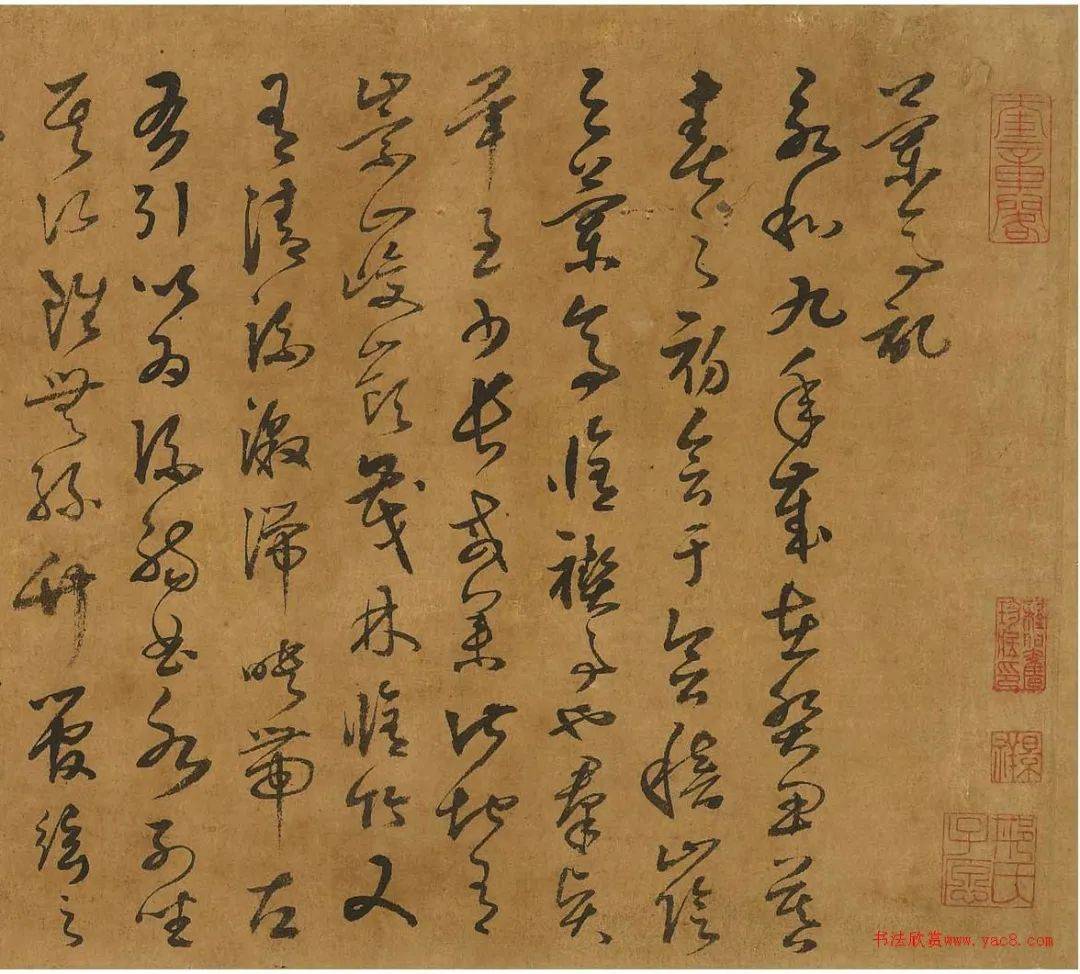 蘭亭
永和九年歲在癸丑暮
春之初會于會稽山陰
之蘭亭脩禊事也羣賢
畢至少長咸集此地有
崇山峻嶺茂林脩竹又
有清流激湍映帶左
右引以為流觴曲水列坐
其次雖無絲竹管絃之
书法欣赏www.yac8.com